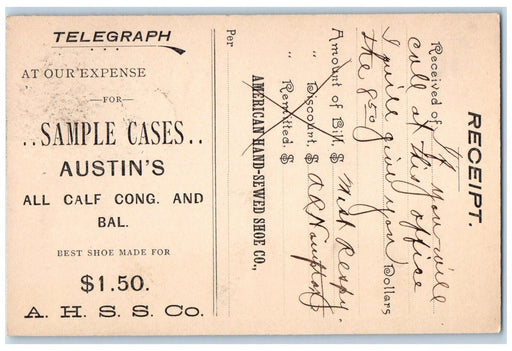 TELEGRAPH
AT OUR EXPENSE
—FOR—
..SAMPLE CASES..
AUSTIN'S
ALL CALF CONG. AND
BAL.
BEST SHOE MADE FOR
$1.50.
A. H. S. S. Co.
RECEIPT.
Received of If you will
call at this office
I will give you Dollars
the 8.50
Amount of Bill, $ Most Respy.
" Discount, $
" Remitted, $
AMERICAN HAND-SEWED SHOE CO.,
Per